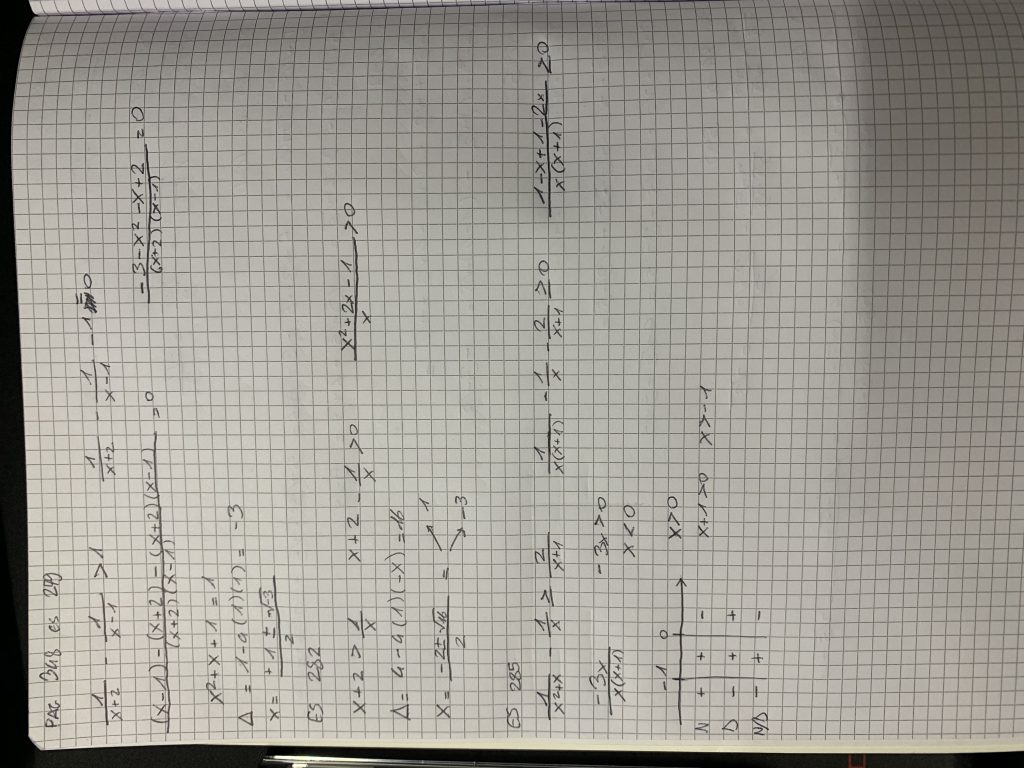 PAG 348 es 279
1/(x+2) - 1/(x-1) > 1    1/(x+2) - 1/(x-1) - 1 = 0
((x-1)-(x+2)-(x+2)(x-1))/((x+2)(x-1)) = 0    (-3-x²-x+2)/((x+2)(x-1)) = 0
x²+x+1=1
Δ = 1-4(1)(1) = -3
x = (+1±√3)/2
ES 282
x+2 > 1/x    x+2 - 1/x > 0    (x²+2x-1)/x > 0
Δ = 4-4(1)(-x) = 16
x = (-2±√16)/2 = ↗ 1 ↘ -3
ES 285
1/(x²+x) - 1/x ≥ 2/(x+1)    1/(x(x+1)) - 1/x - 2/(x+1) ≥ 0    (1-x+1-2x)/(x(x+1)) ≥0
-3x/(x(x+1))    -3x>0
x<0
-1 0    x>0
N + + -    x+1>0    x>-1
D - + +
N/D - + -